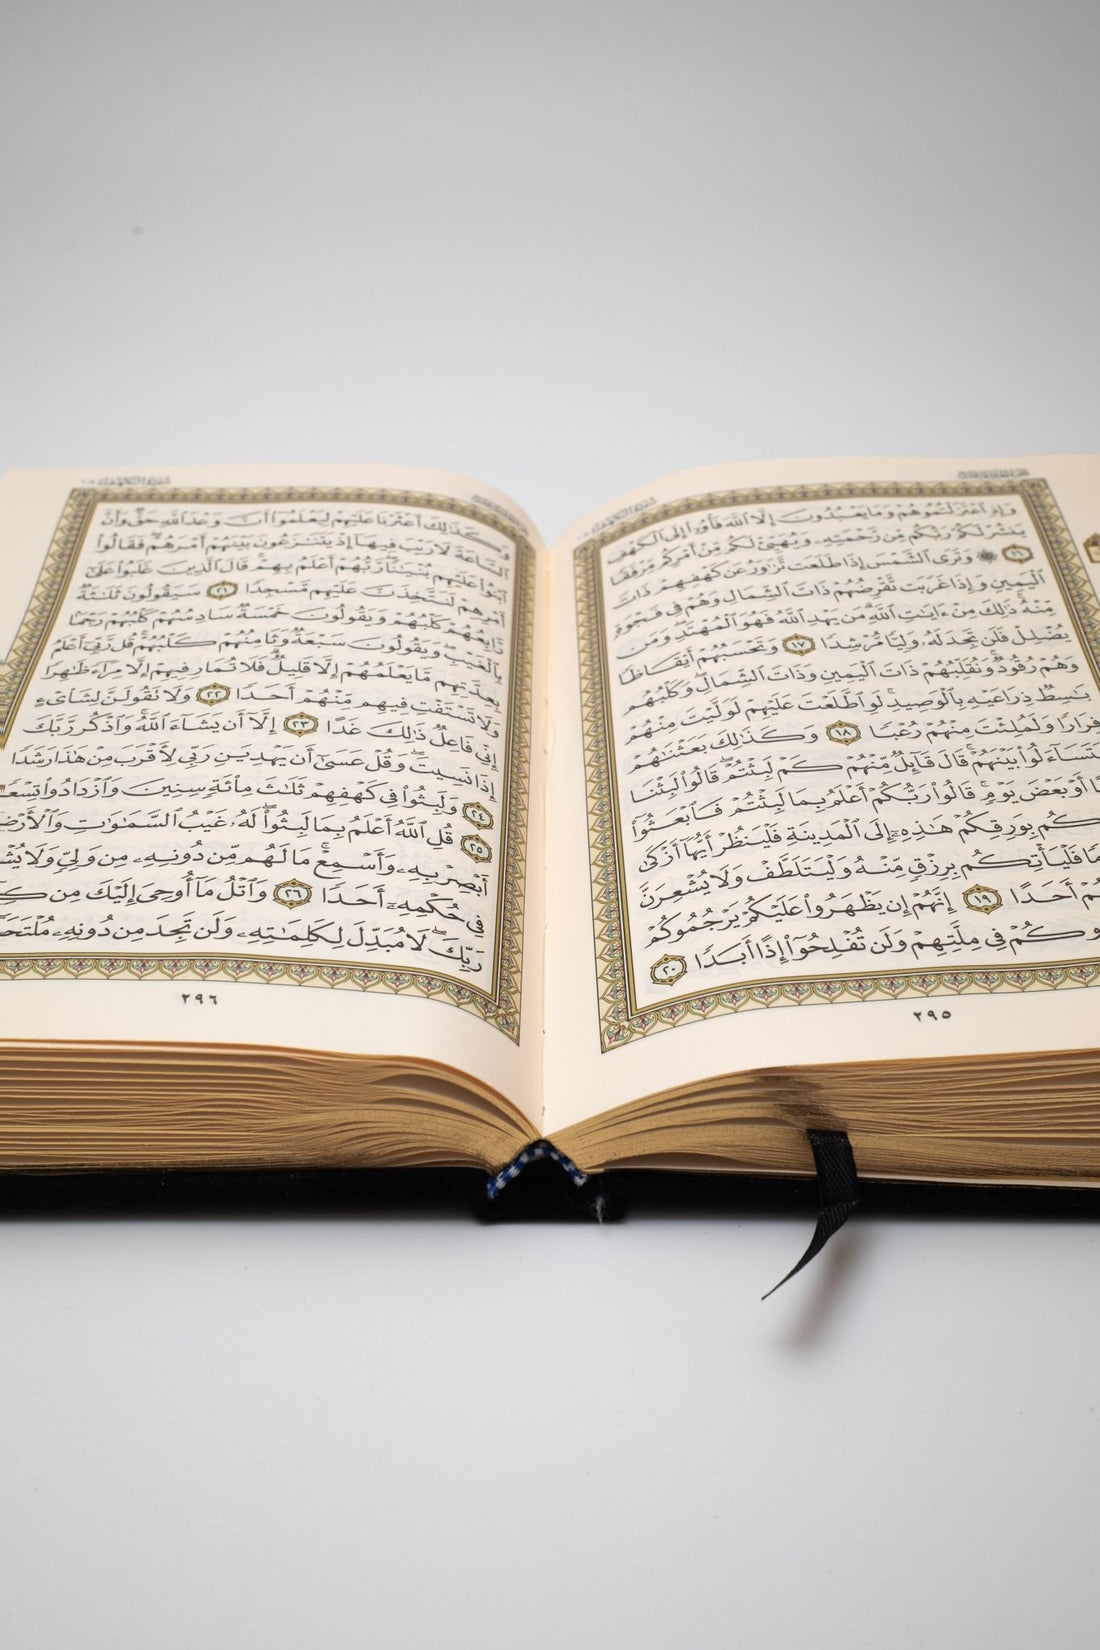 سورة الكهف
وَإِذِ ٱعْتَزَلْتُمُوهُمْ وَمَا يَعْبُدُونَ إِلَّا ٱللَّهَ فَأْوُۥٓا۟ إِلَى ٱلْكَهْفِ
يَنشُرْ لَكُمْ رَبُّكُم مِّن رَّحْمَتِهِۦ وَيُهَيِّئْ لَكُم مِّنْ أَمْرِكُم مِّرْفَقًا
١٦ ۞ وَتَرَى ٱلشَّمْسَ إِذَا طَلَعَت تَّزَٰوَرُ عَن كَهْفِهِمْ ذَاتَ
ٱلْيَمِينِ وَإِذَا غَرَبَت تَّقْرِضُهُمْ ذَاتَ ٱلشِّمَالِ وَهُمْ فِى فَجْوَةٍ
مِّنْهُ ۚ ذَٰلِكَ مِنْ ءَايَٰتِ ٱللَّهِ ۗ مَن يَهْدِ ٱللَّهُ فَهُوَ ٱلْمُهْتَدِ ۖ وَمَن
يُضْلِلْ فَلَن تَجِدَ لَهُۥ وَلِيًّا مُّرْشِدًا ١٧ وَتَحْسَبُهُمْ أَيْقَاظًا
وَهُمْ رُقُودٌ ۚ وَنُقَلِّبُهُمْ ذَاتَ ٱلْيَمِينِ وَذَاتَ ٱلشِّمَالِ ۖ وَكَلْبُهُم
بَٰسِطٌ ذِرَاعَيْهِ بِٱلْوَصِيدِ ۚ لَوِ ٱطَّلَعْتَ عَلَيْهِمْ لَوَلَّيْتَ مِنْهُمْ
فِرَارًا وَلَمُلِئْتَ مِنْهُمْ رُعْبًا ١٨ وَكَذَٰلِكَ بَعَثْنَٰهُمْ
لِيَتَسَآءَلُوا۟ بَيْنَهُمْ ۚ قَالَ قَآئِلٌ مِّنْهُمْ كَمْ لَبِثْتُمْ ۖ قَالُوا۟ لَبِثْنَا
أَوْ بَعْضَ يَوْمٍ ۚ قَالُوا۟ رَبُّكُمْ أَعْلَمُ بِمَا لَبِثْتُمْ فَٱبْعَثُوٓا۟
كُم بِوَرِقِكُمْ هَٰذِهِۦٓ إِلَى ٱلْمَدِينَةِ فَلْيَنظُرْ أَيُّهَآ أَزْكَىٰ
فَلْيَأْتِكُم بِرِزْقٍ مِّنْهُ وَلْيَتَلَطَّفْ وَلَا يُشْعِرَنَّ
أَحَدًا ١٩ إِنَّهُمْ إِن يَظْهَرُوا۟ عَلَيْكُمْ يَرْجُمُوكُمْ
فِى مِلَّتِهِمْ وَلَن تُفْلِحُوٓا۟ إِذًا أَبَدًا ٢٠
٢٩٥
سورة الكهف ١٨
وَكَذَٰلِكَ أَعْثَرْنَا عَلَيْهِمْ لِيَعْلَمُوٓا۟ أَنَّ وَعْدَ ٱللَّهِ حَقٌّ وَأَنَّ
ٱلسَّاعَةَ لَا رَيْبَ فِيهَآ إِذْ يَتَنَٰزَعُونَ بَيْنَهُمْ أَمْرَهُمْ ۖ فَقَالُوا۟
ٱبْنُوا۟ عَلَيْهِم بُنْيَٰنًا ۖ رَّبُّهُمْ أَعْلَمُ بِهِمْ ۚ قَالَ ٱلَّذِينَ غَلَبُوا۟ عَلَىٰٓ
أَمْرِهِمْ لَنَتَّخِذَنَّ عَلَيْهِم مَّسْجِدًا ٢١ سَيَقُولُونَ ثَلَٰثَةٌ
رَّابِعُهُمْ كَلْبُهُمْ وَيَقُولُونَ خَمْسَةٌ سَادِسُهُمْ كَلْبُهُمْ رَجْمًۢا
بِٱلْغَيْبِ ۖ وَيَقُولُونَ سَبْعَةٌ وَثَامِنُهُمْ كَلْبُهُمْ ۚ قُل رَّبِّىٓ أَعْلَمُ
بِعِدَّتِهِم مَّا يَعْلَمُهُمْ إِلَّا قَلِيلٌ ۗ فَلَا تُمَارِ فِيهِمْ إِلَّا مِرَآءً ظَٰهِرًا
وَلَا تَسْتَفْتِ فِيهِم مِّنْهُمْ أَحَدًا ٢٢ وَلَا تَقُولَنَّ لِشَا۟ىْءٍ
إِنِّى فَاعِلٌ ذَٰلِكَ غَدًا ٢٣ إِلَّآ أَن يَشَآءَ ٱللَّهُ ۚ وَٱذْكُر رَّبَّكَ
إِذَا نَسِيتَ وَقُلْ عَسَىٰٓ أَن يَهْدِيَنِ رَبِّى لِأَقْرَبَ مِنْ هَٰذَا رَشَدًا
٢٤ وَلَبِثُوا۟ فِى كَهْفِهِمْ ثَلَٰثَ مِا۟ئَةٍ سِنِينَ وَٱزْدَادُوا۟ تِسْعًا
٢٥ قُلِ ٱللَّهُ أَعْلَمُ بِمَا لَبِثُوا۟ ۖ لَهُۥ غَيْبُ ٱلسَّمَٰوَٰتِ وَٱلْأَرْضِ
أَبْصِرْ بِهِۦ وَأَسْمِعْ ۚ مَا لَهُم مِّن دُونِهِۦ مِن وَلِىٍّ وَلَا
فِى حُكْمِهِۦٓ أَحَدًا ٢٦ وَٱتْلُ مَآ أُوحِىَ إِلَيْكَ مِن
رَبِّكَ ۖ لَا مُبَدِّلَ لِكَلِمَٰتِهِۦ وَلَن تَجِدَ مِن دُونِهِۦ
٢٩٦